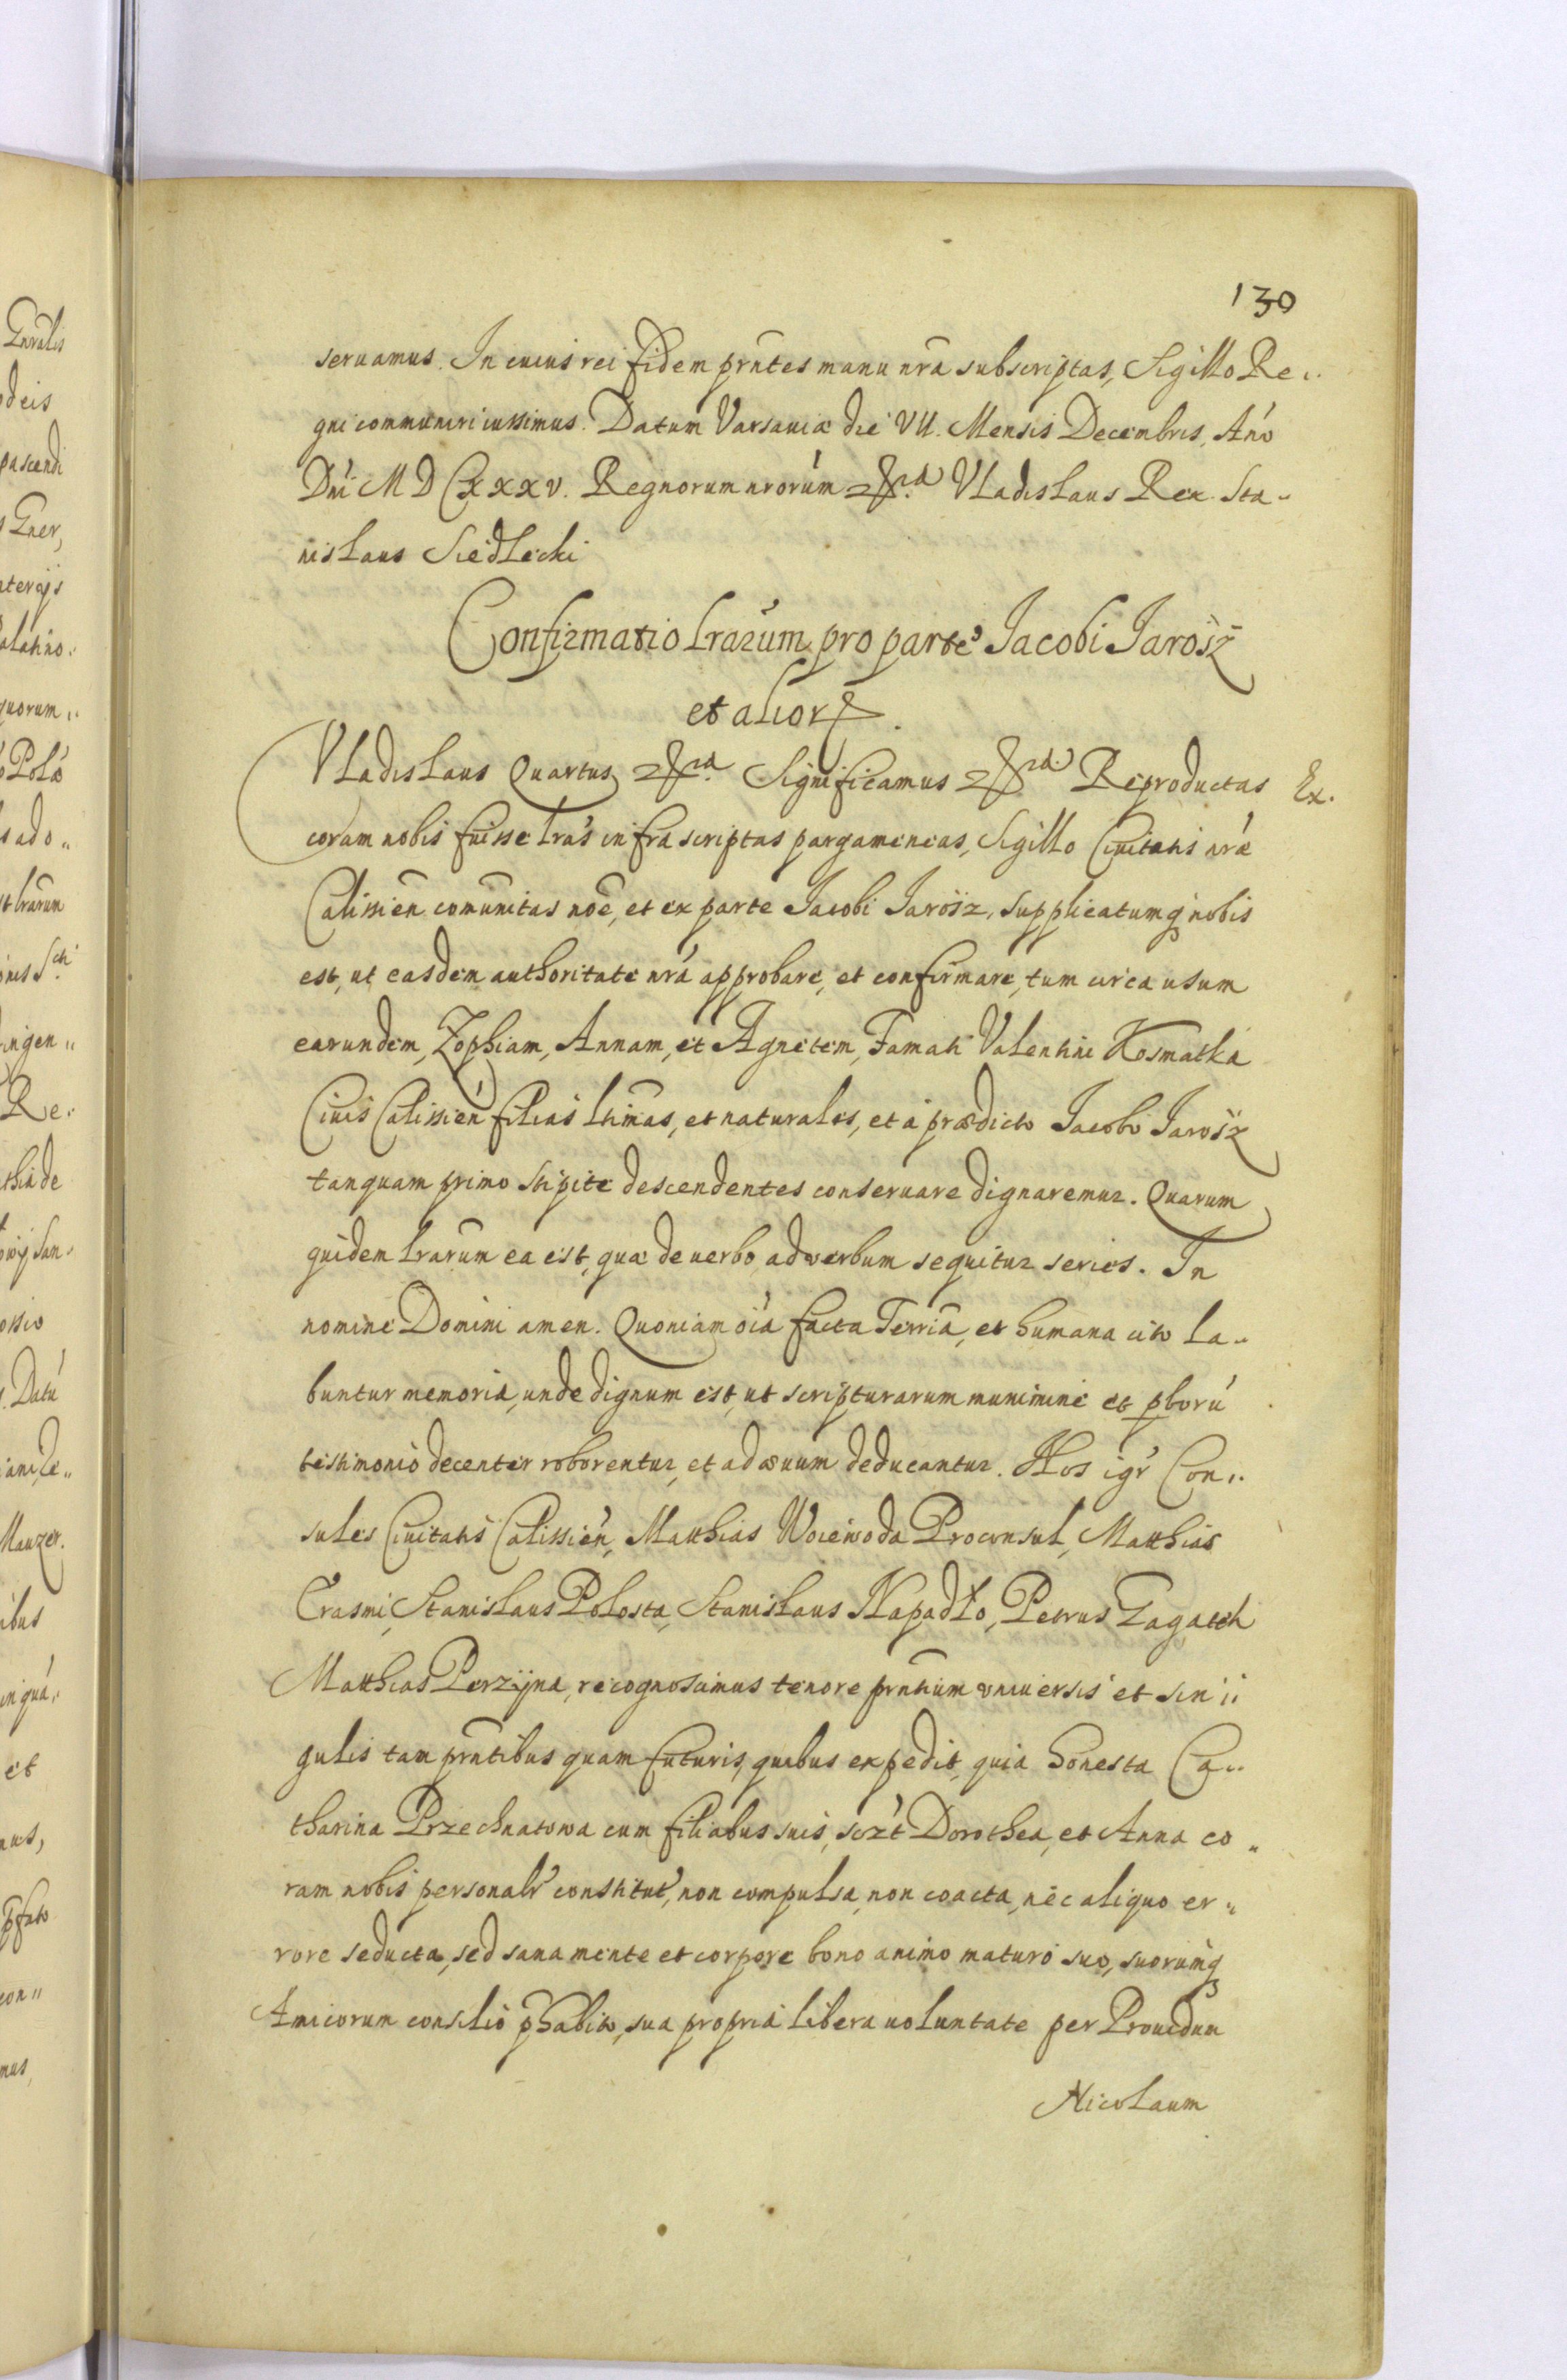 130
seruamus. In cuius rei fidem prntes manu nra subscriptas, Sigillo Re„
gni communiri iussimus. Datum Varsauiæ die VII. Mensis Decembris, Anō
Dni M D C XXXV. Regnorum nrorum &ra Vladislaus Rex. Sta„
nislaus Siedlecki
Confirmatio lrarum pro parte Jacobi Jarosz
et alior.
Vladislaus Quartus &ra Significamus &ra Reproductas Ex.
coram nobis fuisse lras infrascriptas pargameneas, Sigillo Ciuitatis nræ
Calissien comunitas noē, et ex parte Jacobi Jarosz, supplicatumq nobis
est, ut easdem authoritate nra approbare, et confirmare, tum circa usum
earundem, Zophiam, Annam, et Agnetem, Famati Valentini Kosmatka
Ciuis Calissien filias ltimas, et naturales, et a prædicto Jacobo Jarosz
tanquam primo stipite descendentes conseruare dignaremur. Quarum
quidem lrarum ea est, quæ de uerbo ad verbum sequitur series. In
nomine Domini amen. Quoniam oīa facta Terria, et humana cito la„
buntur memoria, unde dignum est, ut scripturarum munimine et pborū
testimonio decenter roborentur, et ad æuum deducantur. Nos igr Con„
sules Ciuitatis Calissien, Matthias Woiewoda Proconsul, Matthias
Erasmi, Stanislaus Polosta, Stanislaus Napadło, Petrus Zagatch
Matthias Perzÿna, recognoscimus tenore prntium vniuersis et sin„
gulis tam prntibus quam futuris, quibus expedit, quia honesta Ca„
tharina Przechnatowa cum filiabus suis, sczt Dorothea, et Anna co„
ram nobis personalr constitut, non compulsa, non coacta, nec aliquo er„
rore seducta, sed sana mente et corpore bono animo maturo suo, suorumq
Amicorum consilio phabito, sua propria libera uoluntate per Prouidum
Nicolaum